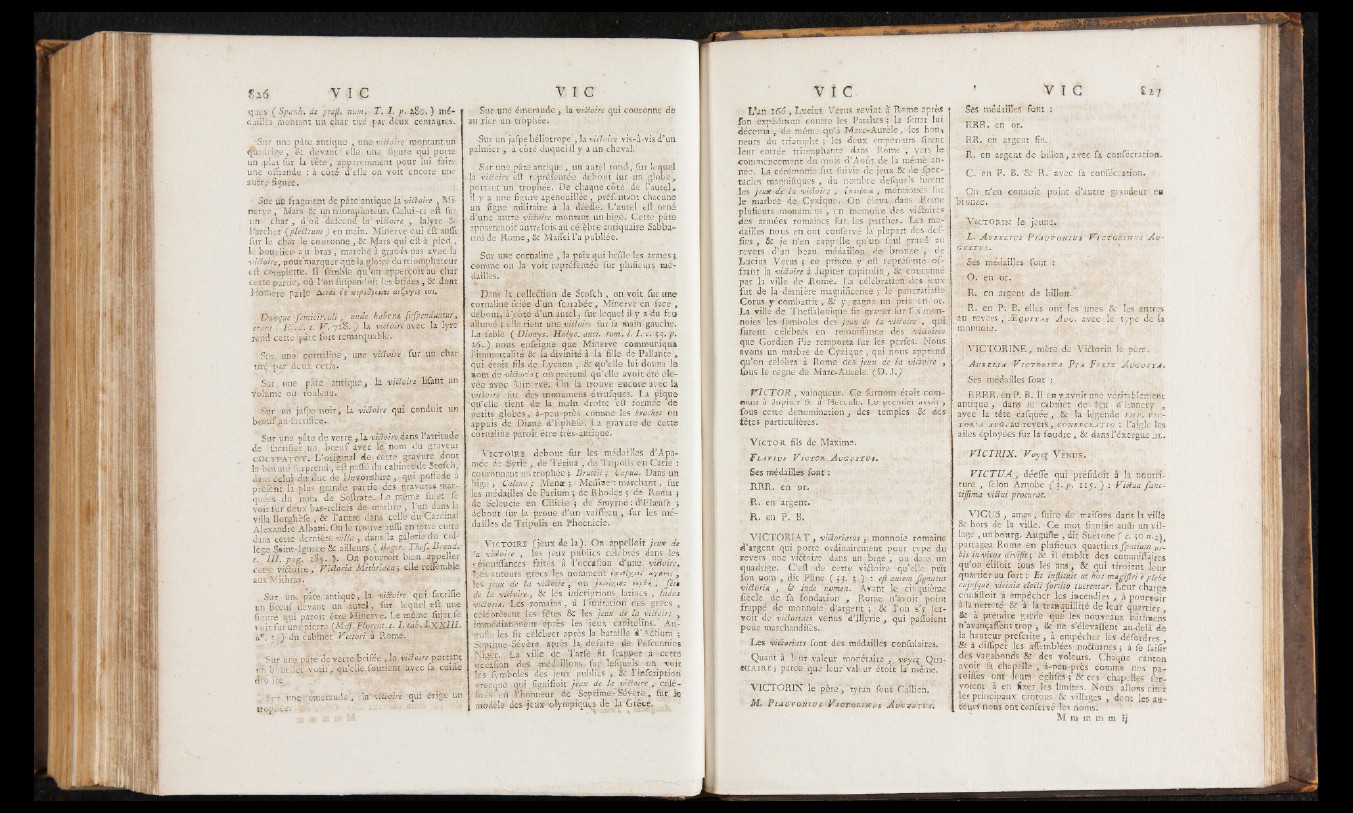 826 VIC VIC
ques ( Spanh. de præst. num. T. I. p. 280. ) mé-
dailles montant un char tiré par deux centaures.
Sur une pâte antique, une victoire montant un
quadrige, & devant elle une figure qui porte
un plat sur la tête, apparemment pour lui faire
une offrande : à côté d'elle on voit encore une
autre figure.
Sur un fragment de pâte antique la victoire, Mi-
nerve, Mars & un triomphateur. Celui-ci est sur
un char, d'où descend la victoire, la lyre &
l'archet (plectrum) en main. Minerve qui est aussi
sur le char le couronne, & Mars qui est à pied,
le bouclier au bras, marche à grands pas avec la
victoire, pour marquer que la gloire du triomphateur
est complette. Il semble qu'on apperçoit au char
cette partie, où l'on suspendoit les brides, & dont
Homere parle
Duoque semicirculi, unde habenæ suspenduntur,
erant ( Iliad. V. 728. ) la victoire avec la lyre
rend cette pâte fort remarquable.
Sur une cornaline, une victoire sur un char
tiré par deux cerfs.
Sur une pâte antique, la victoire lisant un
volume ou rouleau.
Sur un jaspe noir, la victoire qui conduit un
bœuf au sacrifice.
Sur une pâte de verre, la victoire dans l'attitude
de sacrifier un bœuf avec le nom du graveur
L'original de cette gravure dont
la beauté surprend, est passé du cabinet de Stosch,
dans celui du duc de Devonshire, qui possède à
présent la plus grande partie des gravures mar-
quées du nom de Sostrate. Le même sujet se
voit sur deux bas-reliefs de marbre, l'un dans la
villa Borghèse, & l'autre dans celle du Cardinal
Alexandre Albani. On le trouve aussi en terre cuite
dans cette dernière villa, dans la galerie du col-
lège Saint-Ignace & ailleurs ( Beger. Thes. Brand.
t. III. pag. 285. ). On pourroit bien appeller
cette victoire, Victoria Mithriaca; elle ressemble
aux Mithras.
Sur une pâte antique, la victoire qui sacrifie
un bœuf devant un autel, sur lequel est une
figure qui paroît être Minerve. Le même sujet se
voit sur une pierre (Mus. Florent. t. I. tab. LXXIII.
n°. ) du cabinet Vettori à Rome.
Sur une pâte de verre brisée, la victoire portant
un bouclier voûté, qu'elle soutient avec la cuisse
droite.
Sur une émeraude, la victoire qui érige un
trophée.
Sur une émeraude, la victoire qui couronne de
laurier un trophée.
Sur un jaspe héliotrope, la victoire vis-à-vis d'un
palmier, à côté duquel il y a un cheval.
Sur une pâte antique, un autel rond, sur lequel
la victoire est représentée debout sur un globe,
portant un trophée. De chaque côté de l'autel,
il y a une figure agenouillée, présentant chacune
un signe militaire à la déesse. L'autel est orné
d'une autre victoire montant un bige. Cette pâte
appartenoit autrefois au célèbre antiquaire Sabba-
tini de Rome, & Maffei l'a publiée.
Sur une cornaline, la paix qui brûle les armes;
comme on la voit représentée sur plusieurs mé-
dailles.
Dans la collection de Stosch, on voit sur une
cornaline sciée d'un scarabée, Minerve en face,
debout, à côté d'un autel, sur lequel il y a du feu
allumé; elle tient une victoire sur la main gauche.
La fable ( Dionys. Halyc. ant. rom. l. I. c. 33. p.
26. ) nous enseigne que Minerve communiqua
l'immortalité & la divinité à la fille de Pallante,
qui étoit fils de Lycaon, & qu'elle lui donna le
nom de victoria; on prétend qu'elle avoit été éle-
vée avec Minerve. On la trouve encore avec la
victoire sur des monumens étrusques. La pique
qu'elle tient de la main droite est formée de
petits globes, à-peu-près comme les broches ou
appuis de Diane d'Ephèse. La gravure de cette
cornaline paroît être très-antique.
VICTOIRE debout sur les médailles d'Apa-
mée de Syrie, de Térina, de Tripolis en Carie :
couronnant un trophée; Brutii; Capua. Dans un
bige, Caleno; Menæ : Messine; marchant, sur
les médailles de Parium; de Rhodes; de Roma;
de Séleucie en Cilicie; de Smyrne : d'Elæusa;
debout sur la proue d'un vaisseau, sur les mé-
dailles de Tripolis en Phoenicie.
VICTOIRE (jeux de la). On appelloit jeux de
la victoire, les jeux publics célébrés dans les
réjouissances faites à l'occasion d'une victoire.
Les auteurs grecs les nomment
les jeux de la victoire, ou fête
de la victoire, & les inscriptions latines, ludos
victoriæ. Les romains, à l'imitation des grecs,
célébrèrent les fêtes & les jeux de la victoire,
immédiatement après les jeux capitolins. Au-
guste les fit célébrer après la bataille d'Actium;
Septime-Sévère après la défaite de Pescennius
Niger. La ville de Tarse fit frapper à cette
occasion des médaillons sur lesquels on voit
les symboles des jeux publics, & l'inscription
grecque qui signifioit jeux de la victoire, célé-
brés en l'honneur de Septime-Sévère, sur le
modèle des jeux olympiques de la Grèce.
VIC VIC 827
L'an 166, Lucius Verus revint à Rome après
son expédition contre les Parthes; le sénat lui
décerna, de même qu'à Marc-Aurèle, les hon-
neurs du triomphe; les deux empereurs firent
leur entrée triomphante dans Rome, vers le
commencement du mois d'Août de la même an-
née. La cérémonie fut suivie de jeux & de spec-
tacles magnifiques, du nombre desquels furent
les jeux de la victoire, mentionés sur
le marbre de Cyzique. On éleva dans Rome
plusieurs monumens, en mémoire des victoires
des armées romaines sur les parthes. Les mé-
dailles nous en ont conservé la plupart des des-
sins, & je n'en rappelle qu'un seul gravé au
revers d'un beau médaillon de bronze, de
Lucius Verus; ce prince y est représenté of-
frant la victoire à Jupiter capitolin, & couronné
par la ville de Rome. La célébration des jeux
fut de la dernière magnificence; le pancratiaste
Corus y combattit, & y gagna un prix en or.
La ville de Thessalonique fit graver sur ses mon-
noies les symboles des jeux de la victoire, qui
furent célébrés en réjouissance des victoires
que Gordien Pie remporta sur les perses. Nous
avons un marbre de Cyzique, qui nous apprend
qu'on célébra à Rome des jeux de la victoire,
sous le regne de Marc-Aurèle. (D. J.)
VICTOR, vainqueur. Ce surnom étoit com-
mun à Jupiter & à Hercule. Le premier avoit,
sous cette dénomination, des temples & des
fêtes particulières.
VICTOR fils de Maxime.
FLAVIUS VICTOR AUGUSTUS.
Ses médailles sont :
RRR. en or.
R. en argent.
R. en P. B.
VICTORIAT, victoriatus, monnoie romaine
d'argent qui porte ordinairement pour type du
revers une victoire dans un bige, ou dans un
quadrige. C'est de cette victoire qu'elle prit
son nom, dit Pline ( 33. 3 ) : est autem signatus
victoria, & inde nomen. Avant le cinquième
siècle de sa fondation, Rome n'avoit point
frappé de monnoie d'argent, & l'on s'y ser-
voit de victoriats venus d'Illyrie, qui passoient
pour marchandises.
Les victoriats sont des médailles consulaires.
Quant à leur valeur monétaire, voyez QUI-
NAIRE; parce que leur valeur étoit la même.
VICTORIN le père, tyran sous Gallien.
M. PIAUVONIUS VICTORINUS AUGUSTUS.
Ses médailles sont :
RRR. en or.
RR. en argent fin.
R. en argent de billon, avec sa consécration.
C. en P. B. & R. avec sa consécration.
On n'en connoît point d'autre grandeur en
bronze.
VICTORIN le jeune.
L. AURELIUS PIAUVONIUS VICTORINUS AU-
GUSTUS.
Ses médailles sont :
O. en or.
R. en argent de billon.
R. en P. B. elles ont les unes & les autres
au revers, ÆQUITAS AUG. avec le type de la
monnoie.
VICTORINE, mère de Victorin le père.
AURELIA VICTORINA PIA FELIX AUGUSTA.
Ses médailles sont :
RRRR. en P. B. Il en y avoit une véritablement
antique, dans le cabinet de feu d'Ennery,
avec la tête casquée, & la légende IMP. VIC-
TORIA AUG. au revers, CONSECRATIO : l'aigle les
ailes éployées sur la foudre, & dans l'exergue III.
VICTRIX. Voyez VENUS.
VICTUA, déesse qui présidoit à la nourri-
ture, selon Arnobe ( 3. p. 115. ) : Victua sanc-
tissima victui procurat.
VICUS, amas, suite de maisons dans la ville
& hors de la ville. Ce mot signifie aussi un vil-
lage, un bourg. Auguste, dit Suétone ( c. 30 n. 2),
partagea Rome en plusieurs quartiers spatium ur-
bis in vicos divisit; & il établit des commissaires
qu'on élisoit tous les ans, & qui tiroient leur
quartier au sort : Et instituit ut hos magistri e plebe
cujusque viciniæ electi sortito tuerentur. Leur charge
consistoit à empêcher les incendies, à pourvoir
à la netteté & à la tranquillité de leur quartier,
& à prendre garde que les nouveaux bâtimens
n'avançassent trop, & ne s'élevassent au-delà de
la hauteur prescrite, à empêcher les désordres,
& à dissiper les assemblées nocturnes; à se saisir
des vagabonds & des voleurs. Chaque canton
avoit sa chapelle, à-peu-près comme nos pa-
roisses ont leurs églises; & ces chapelles ser-
voient à en fixer les limites. Nous allons citer
les principaux cantons & villages, dont les au-
teurs nous ont conservé les noms.
M m m m m ij